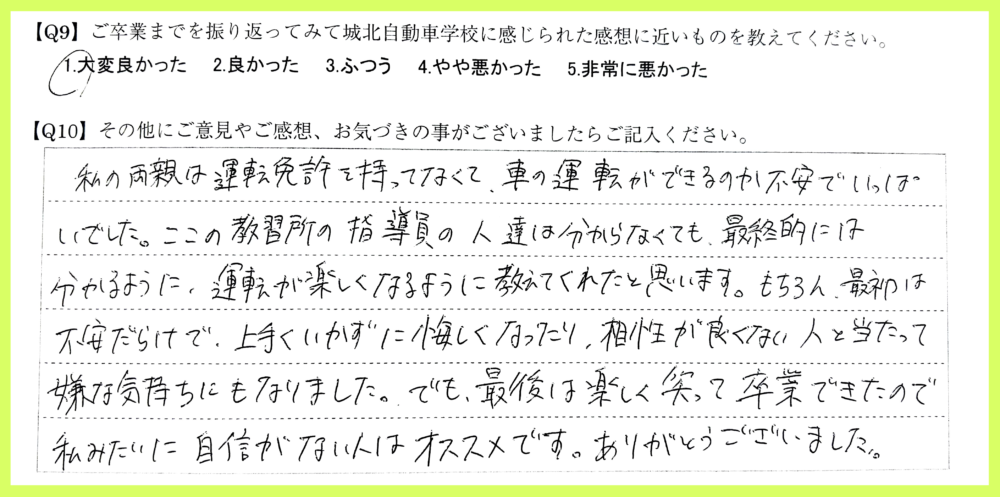 【Q9】ご卒業までを振り返ってみて城北自動車学校に感じられた感想に近いものを教えてください。
1.大変良かった 2.良かった 3.ふつう 4.やや悪かった 5.非常に悪かった
【Q10】その他にご意見やご感想、お気づきの事がございましたらご記入ください。
私の両親は運転免許を持ってなくて、車の運転ができるのか不安でいっぱ
いでした。ここの教習所の指導員の人達は分からなくても、最終的には
分かるように、運転が楽しくなるように教えてくれたと思います。もちろん、最初は
不安だらけで、上手くいかずに悔しくなったり、相性が良くない人と当たって
嫌な気持ちにもなりました。でも、最後は楽しく笑って卒業できたので
私みたいに自信がない人はオススメです。ありがとうございました。